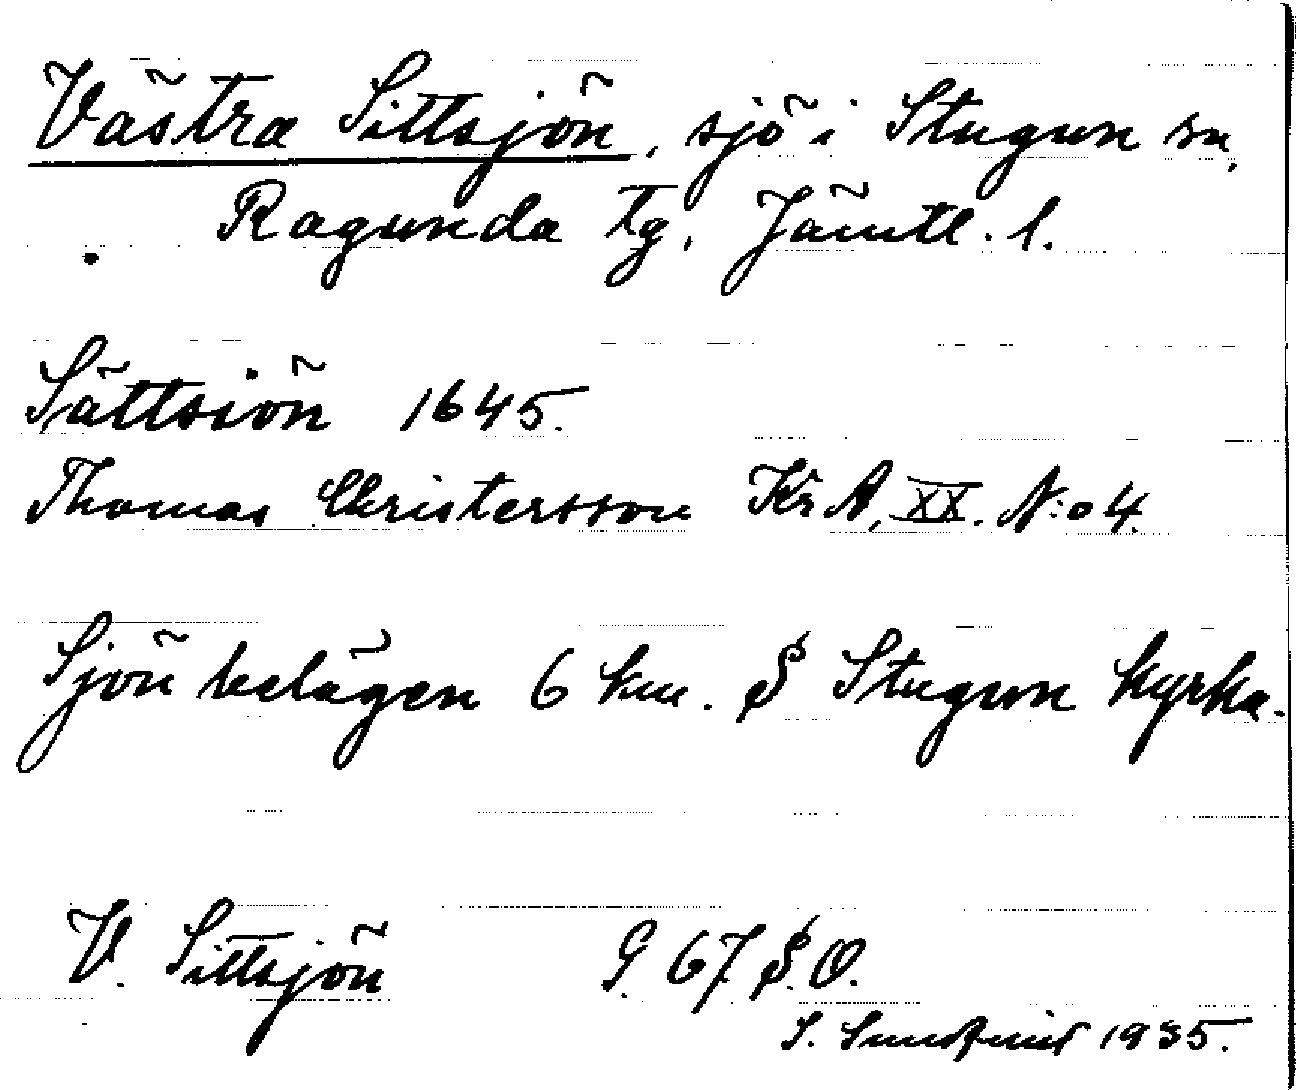 Västra Sittsjön, sjö i Stugun sn,
Ragunda tg, Jämtl. l.
Sättsiön 1645.
Thomas Christersson KrA, XX. N:o 4.
Sjön belägen 6 km. S Stugun kyrka.
V. Sittsjön G. 67 S.O.
S. 1935.